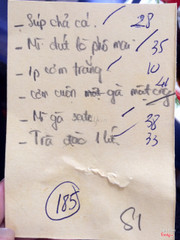 - Súp chả cá 28
- Mì đút lò phô mai 35
- 1p cơm trắng 10
- cơm cuộn một gà mắt ong 41
- Mì gà sate 38
- Trà đào 1 ly 33
185
S1